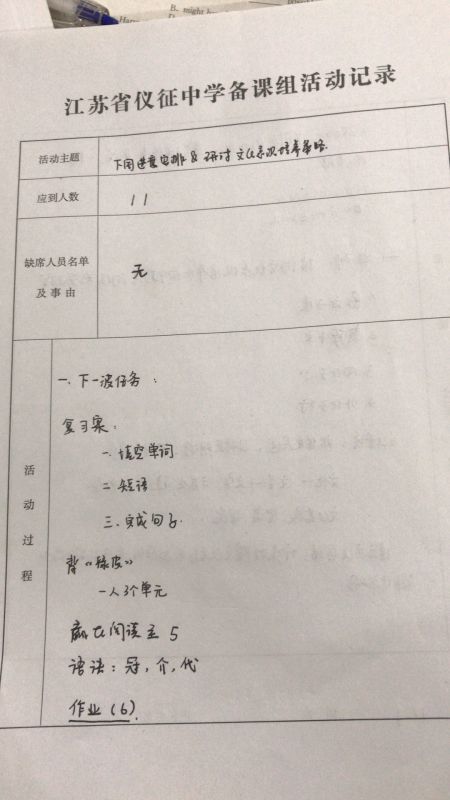 B. might b
江苏省仪征中学备课组活动记录
活动主题 下周进度安排 & 研讨 文化意识培养策略
应到人数 11
缺席人员名单
及事由 无
活动过程
一、下一波任务：
复习案：
一、填空单词
二、短语
三、完成句子
背《绿皮》
一人3个单元
赢在阅读 5
语法：冠，介，代
作业（6）